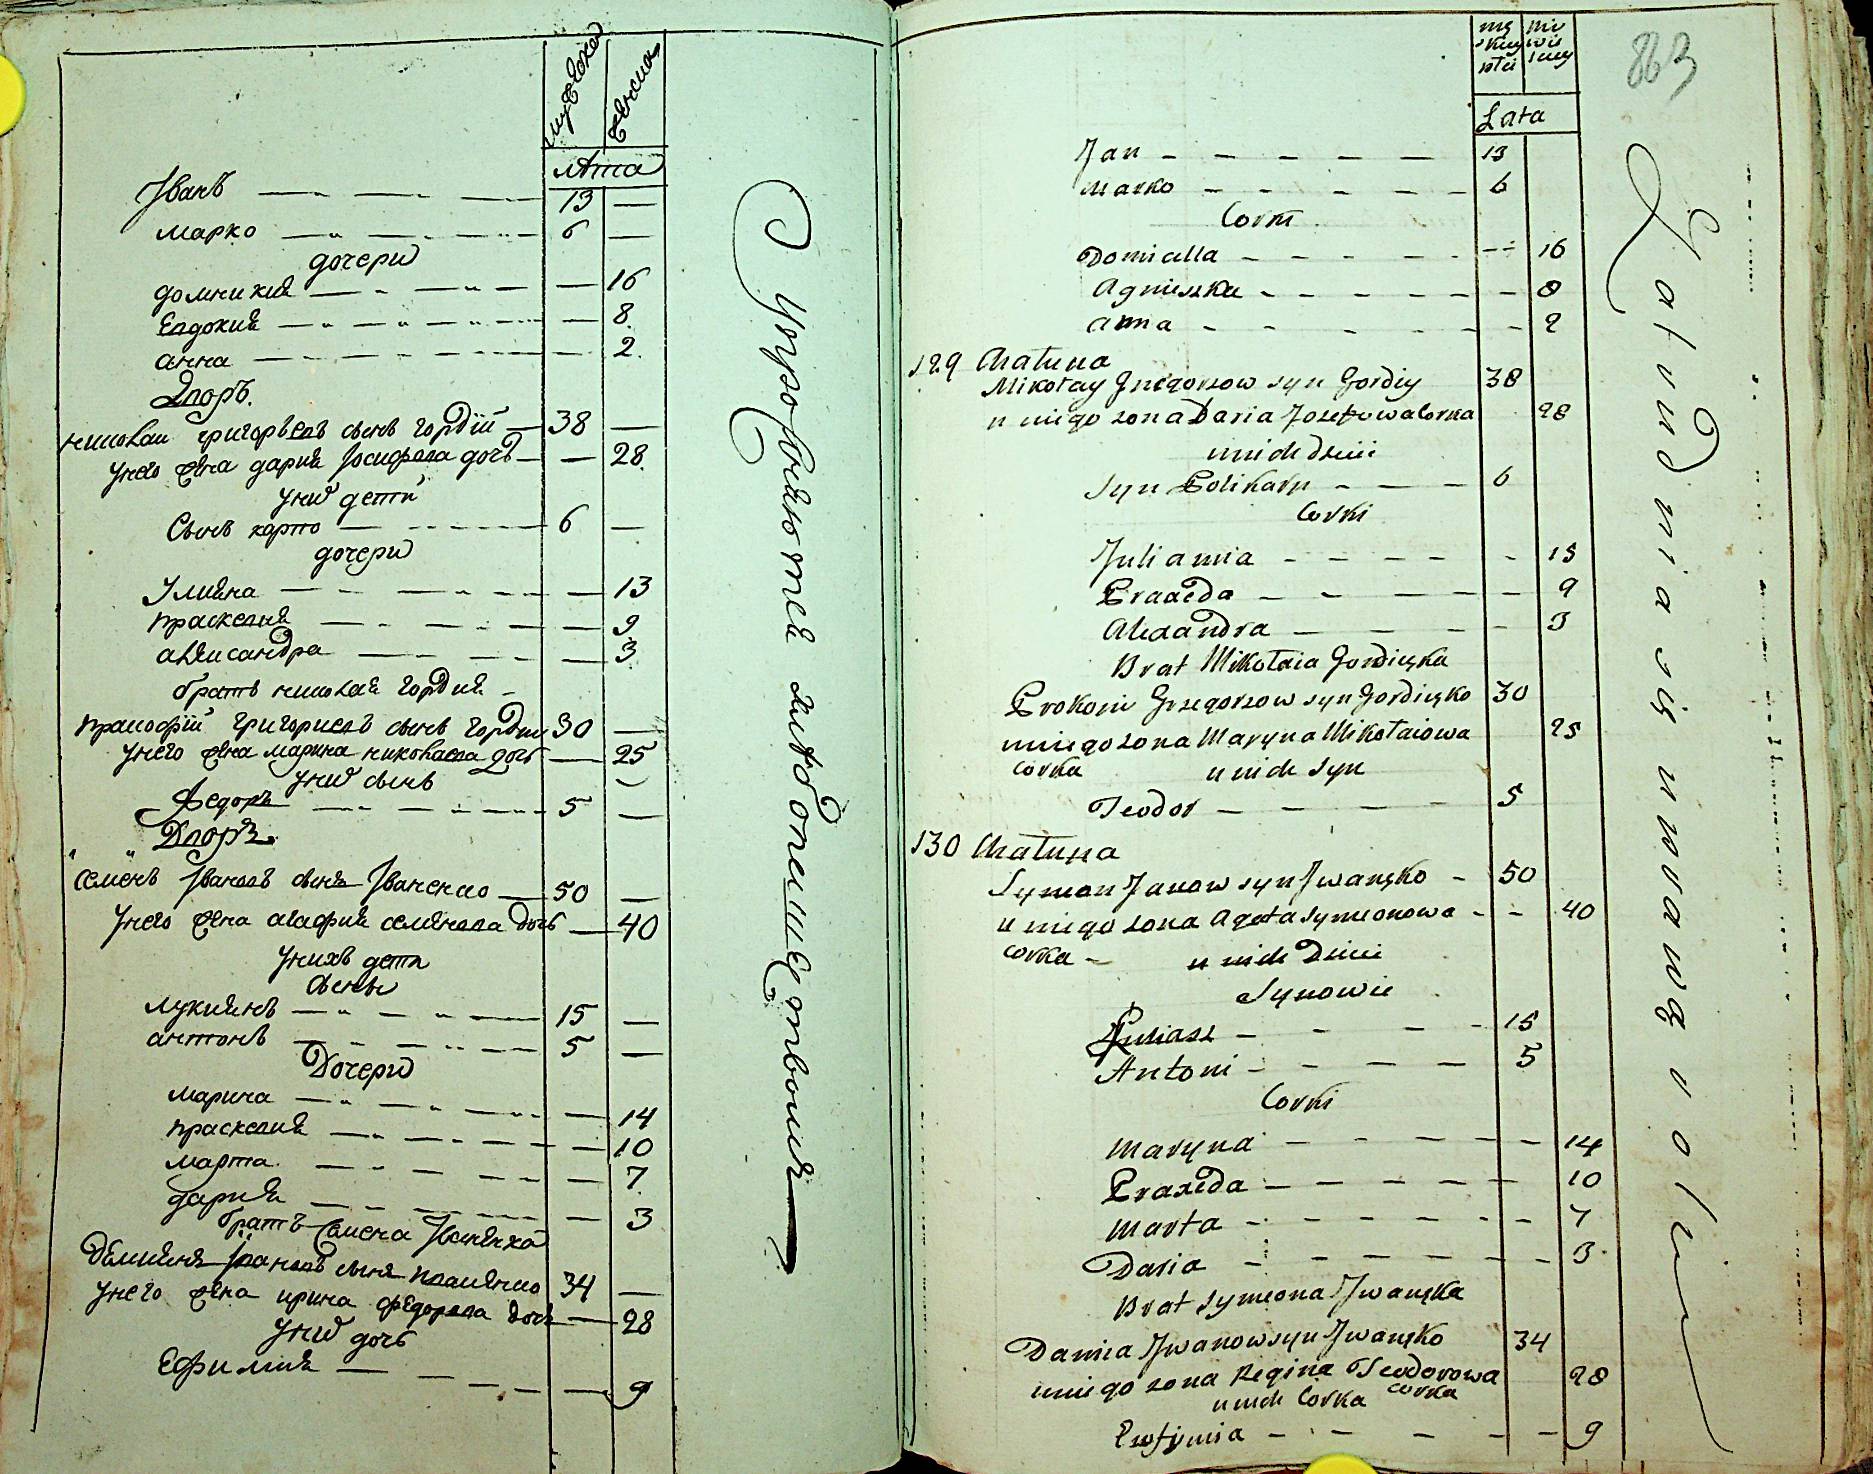 мужеска
женска
лѣта
Iванъ 13 —
марко 6 —
дочери
домникия — 16
Евдокия — 8
анна — 2
Дворъ.
николай григорьевъ сынъ гордiй 38 —
унего жена дария Iосифова дочь — 28
уних дети
Сынъ карпо 6 —
дочери
Улияна — 13
праскевия — 9
александра — 3
братъ николая гордия
прокофiй григориевъ сынъ гордии 30 —
унего жена марина николаева дочь — 25
уних сынъ
Федоръ 5 —
Дворъ
семенъ Iвановъ сынъ Iваненко 50 —
унего жена агафия семенова дочь — 40
унихъ дети
сыны
лукиянъ 15 —
антонъ 5 —
Дочери
марина — 14
праскевия — 10
марта — 7
дария — 3
братъ семена Iваненка
Демиянъ Iвановъ сынъ 34 —
унего жена ирина федорова дочь — 28
уних дочь
Ефимия — 9
męskiey płci
niewieściey
Lata
863
Jan 13
Marko 6
Corki
Domicella 16
Agnieszka 8
Anna 2
129 Chatupa
Mikołay Grzegorzow syn Gordiy 38
u niego zona Daria Jozefowa Corka 28
u nich dzieci
Syn Polikarp 6
Corki
Julianna 13
Praxeda 9
Alexandra 3
Brat Mikołaia Gordieyka
Prokopi Grzegorzow syn Gordieyko 30
u niego zona Maryna Mikołaiowa 25
corka u nich syn
Teodor 5
130 Chatupa
Symon Janow syn Jwanęko 50
u niego zona Agata Symeonowa 40
corka u nich Dzieci
Synowie
Łukiasz 15
Antoni 5
Corki
Maryna 14
Praxeda 10
Marta 7
Daria 3
Brat Symeona Jwanęka
Damia Jwanow syn Jwanęko 34
u niego zona Regina Teodorowa 28
u nich Corka corka
Eufymia 9